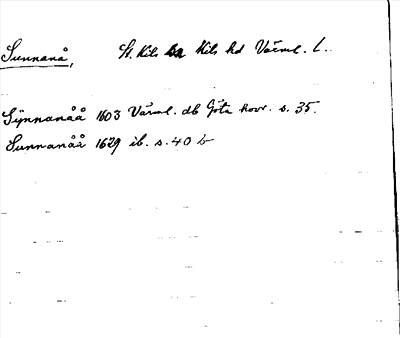 Sunnanå, St. Kils sn Kils hd Värml. L.
Sÿnnanåå 1603 Värml. db Göta hovr. s. 35.
Sunnanåå 1629 ib. s. 40 b